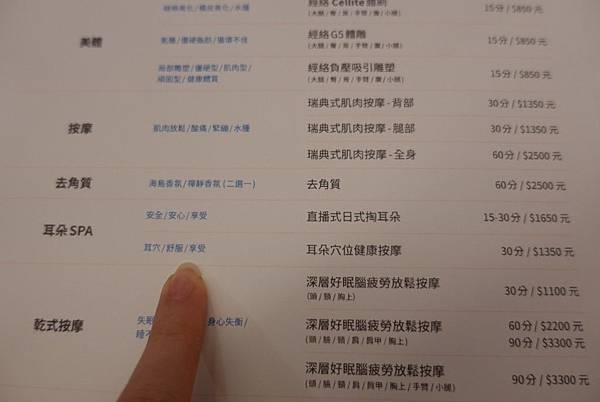 橘皮美化/水腫
經絡 Cellite 體刷
(大腿/臀/背/手臂/腹/小腿)
15分/$850元
美體
鬆腫/僵硬脂肪/循環不佳
經絡G5體雕
(大腿/臀/背/手臂/腹/小腿)
15分/$850元
局部雕塑/僵硬型/肌肉型/
頑固型/健康體質
經絡負壓吸引雕塑
(大腿/臀/背/手臂/腹/小腿)
15分/$850元
按摩
肌肉放鬆/酸痛/緊繃/水腫
瑞典式肌肉按摩-背部
30分/$1350元
瑞典式肌肉按摩-腿部
30分/$1350元
瑞典式肌肉按摩-全身
60分/$2500元
去角質
海島香氛/禪靜香氛(二選一)
去角質
60分/$2500元
耳朵SPA
安全/安心/享受
直播式日式掏耳朵
15-30分/$1650元
耳穴/舒服/享受
耳朵穴位健康按摩
30分/$1350元
乾式按摩
失眠
身心失衡/
睡不
深層好眠腦疲勞放鬆按摩
(頭/頸/胸上)
30分/$1100元
深層好眠腦疲勞放鬆按摩
(頭/臉/頸/肩/肩甲/胸上)
60分/$2200元
90分/$3300元
深層好眠腦疲勞放鬆按摩
(頭/臉/頸/肩/肩甲/胸上/手臂/小腿)
90分/$3300元